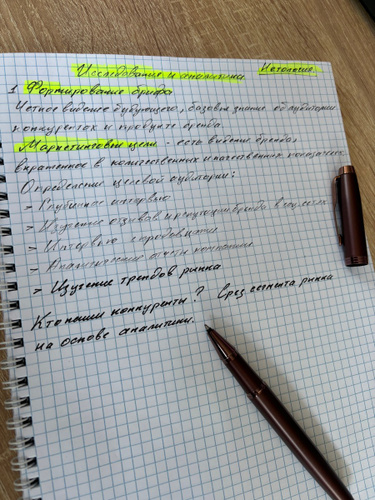 Исследование и аналитика Нетология.
1 Формирование брифа
Четкое видение будущего, базовые знания об аудитории
конкурентах и продукте бренда.
Маркетинговые цели - есть видение бренда,
выраженное в количественных и качественных показателях.
Определение целевой аудитории:
> Глубинное интервью
> Изучение отзывов и репутации бренда в соц.сетях
> Интервью с продавцами
> Аналитические отчеты компании
> Изучение трендов рынка
Кто наши конкуренты? Срез сегмента рынка
на основе аналитики.